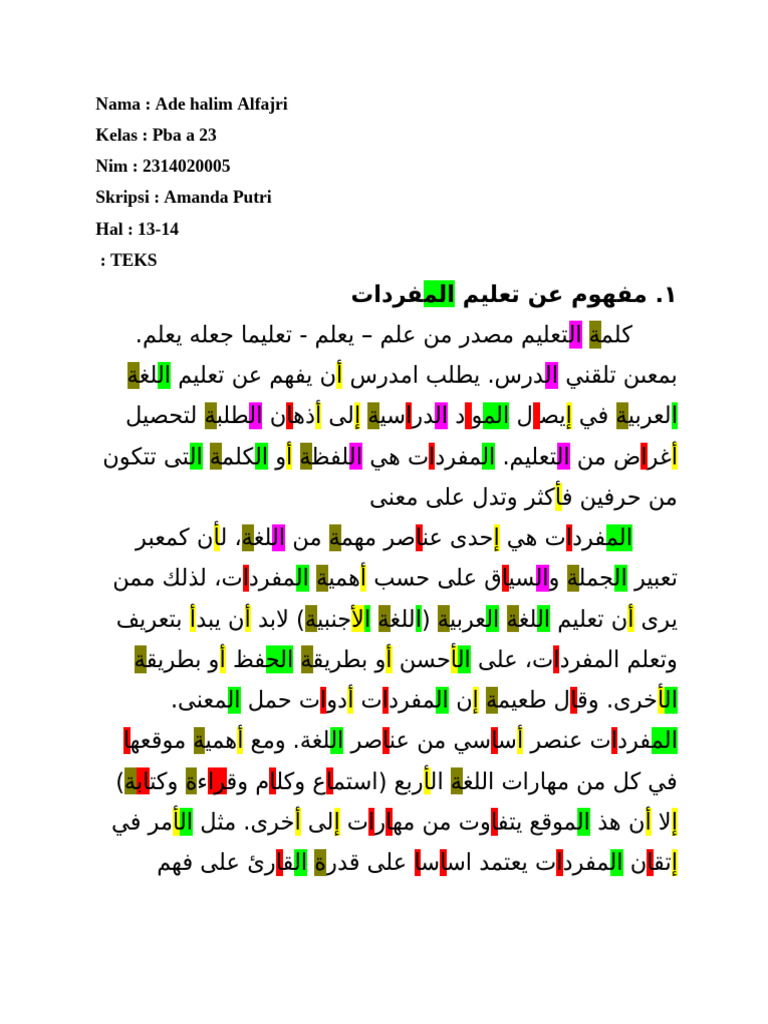 Nama : Ade halim Alfajri
Kelas : Pba a 23
Nim : 2314020005
Skripsi : Amanda Putri
Hal : 13-14
: TEKS
١. مفهوم عن تعليم المفردات
كلمة التعليم مصدر من علم – يعلم - تعليما جعله يعلم.
بمعىن تلقني الدرس. يطلب امدرس أن يفهم عن تعليم اللغة
العربية في إيصال المواد الدراسية إلى أذهان الطلبة لتحصيل
أغراض من التعليم. المفردات هي اللفظة أو الكلمة التى تتكون
من حرفين فأكثر وتدل على معنى
المفردات هي إحدى عناصر مهمة من اللغة، لأن كمعبر
تعبير الجملة والسياق على حسب أهمية المفردات، لذلك ممن
يرى أن تعليم اللغة العربية (اللغة الأجنبية) لابد أن يبدأ بتعريف
وتعلم المفردات، على الأحسن أو بطريقة الحفظ أو بطريقة
الأخرى. وقال طعيمة إن المفردات أدوات حمل المعنى.
المفردات عنصر أساسي من عناصر اللغة. ومع أهمية موقعها
في كل من مهارات اللغة الأربع (استماع وكلام وقراءة وكتابة)
إلا أن هذ الموقع يتفاوت من مهارات إلى أخرى. مثل الأمر في
إتقان المفردات يعتمد اساسا على قدرة القارئ على فهم